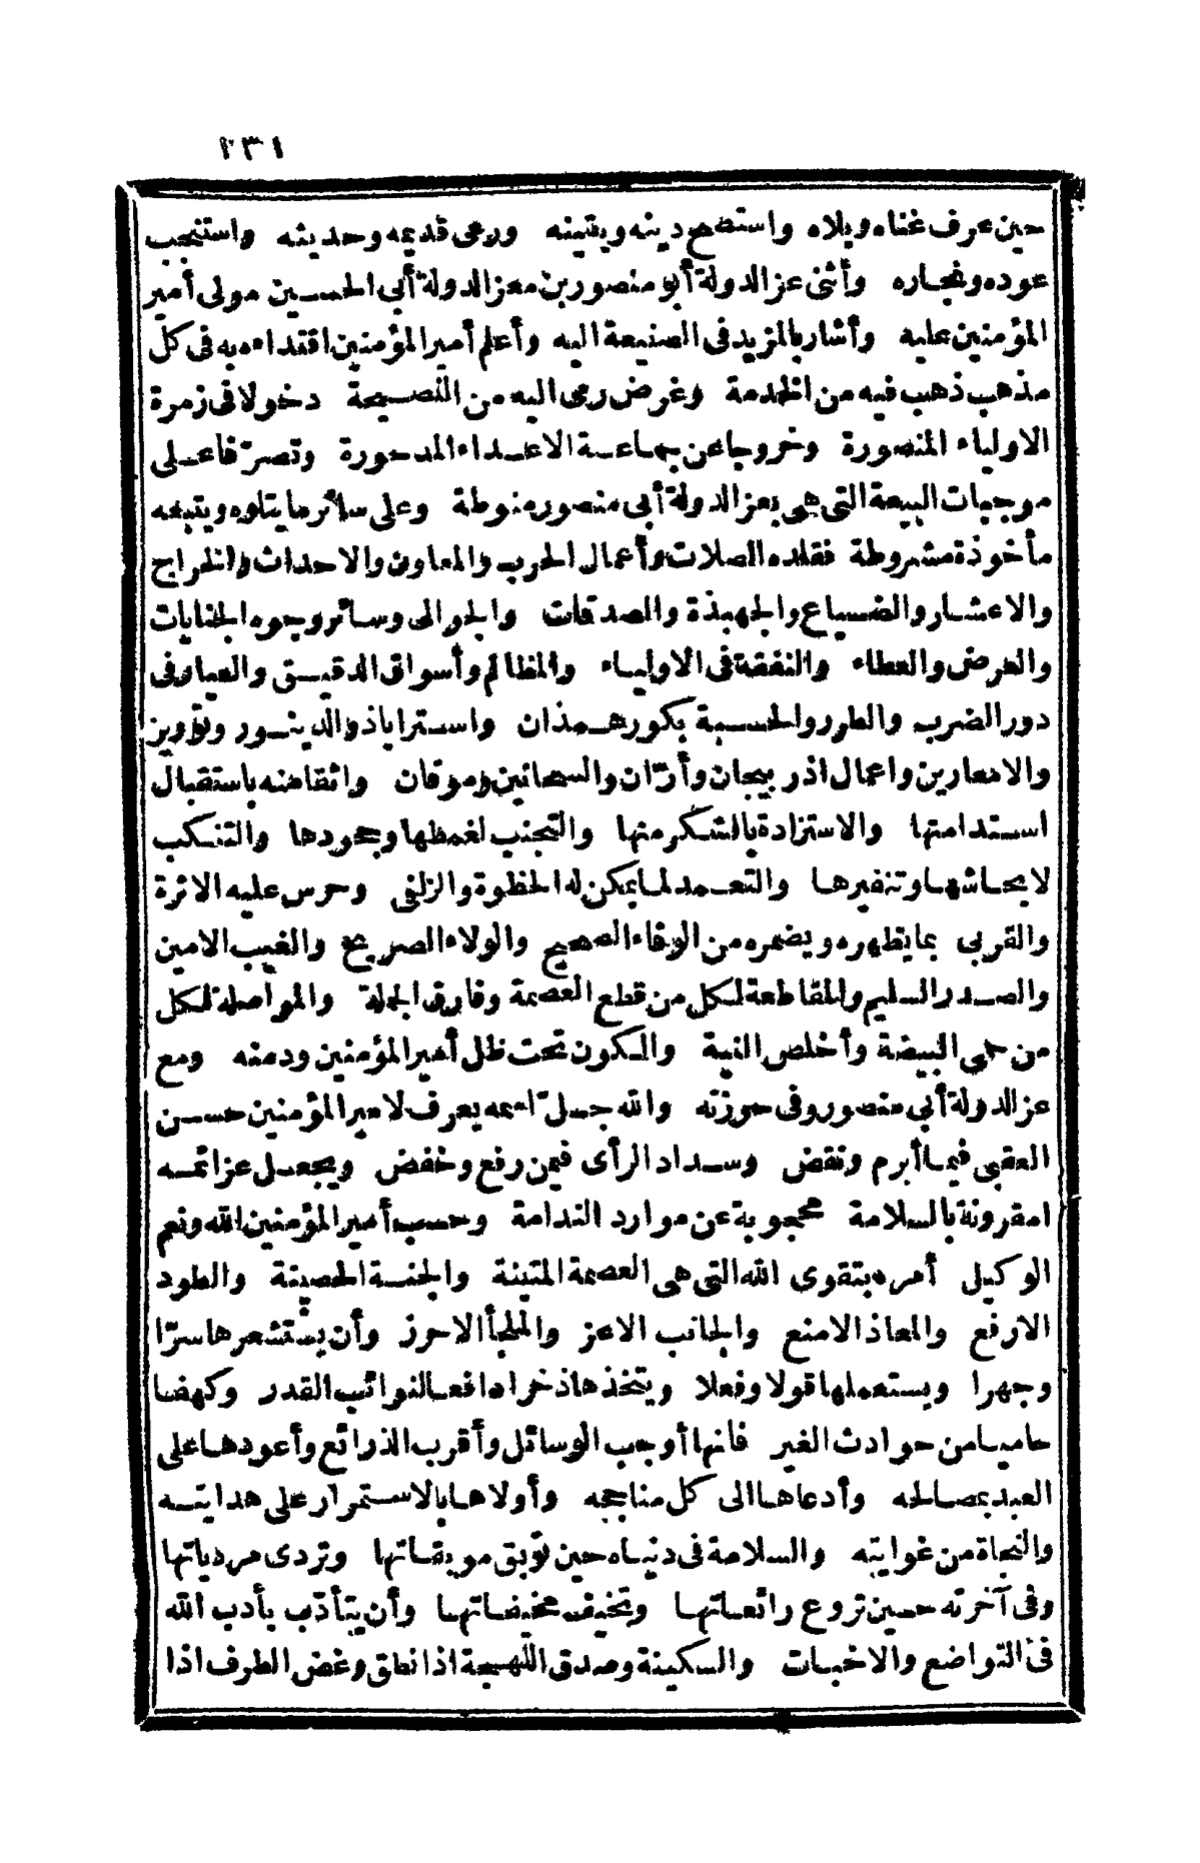 ٢٣١
حين عرف غناه وبلاه واستصح دينه ويقينه ورعى قديمه وحديثه واستنجب
عوده ونجاره وأثنى عز الدولة أبو منصور بن معز الدولة أبى الحسين مولى أمير
المؤمنين عليه وأشار بالمزيد فى الصنيعة اليه وأعلم أمير المؤمنين اقتداءه به فى كل
مذهب ذهب فيه من الخدمة وغرض رمى اليه من النصيحة دخولا فى زمرة
الاولياء المنصورة وخروجا عن جماعة الاعداء المدحورة وتصرّفا على
موجبات البيعة التى هى بعز الدولة أبى منصور منوطة وعلى سائر ما يتلوه ويتبعه
مأخوذة مشروطة فقلده الصلات وأعمال الحرب والمعاون والاحداث والخراج
والاعشار والضياع والجهبذة والصدقات والجوالى وسائر وجوه الجنايات
والعرض والعطاء والنفقة فى الاولياء والمظالم وأسواق الدقيق والعيار فى
دور الضرب والطرر والحسبة بكور همذان واستراباذ والدينور وتؤويز
والامعارين واعمال اذربيجان وأرّان والسحانين وموقان واثقا منه باستقبال
استدامتها والاستزادة بالشكر منها والتجنب لغمطها وجحودها والتنكب
لايحاشها وتنفيرها والتعمد لما يمكن له الحظوة والزلفى وحرس عليه الاثرة
والقربى بما يظهره ويضمره من الوفاء الصحيح والولاء الصريح والغيب الامين
والصدر السليم والمقاطعة لكل من قطع العصمة وفارق الجملة والمواصلة لكل
من حمى البيضة وأخلص النية والكون تحت ظل أمير المؤمنين وذمته ومع
عز الدولة أبى منصور وفى حوزته والله جل ّاسمه يعرف لامير المؤمنين حسن
العقبى فيما أبرم ونقض وسداد الرأى فيمن رفع وخفض ويجعل عزائمه
امقرونة بالسلامة محجوبة عن موارد الندامة وحسب أمير المؤمنين الله ونعم
الوكيل أمره بتقوى الله التى هى العصمة المتينة والجنة الحصينة والطود
الارفع والمعاذ الامنع والجانب الاعز والملجأ الاحرز وأن يستشعرها سرّا
وجهرا ويستعملها قولا وفعلا ويتخذها ذخرا دافعا لنوائب القدر وكهفا
حاميا من حوادث الغير فانها أوجب الوسائل وأقرب الذرائع وأعودها على
العبد بمصالحه وأدعاها الى كل مناجحه وأولاها بالاستمرار على هدايته
والنجاة من غوايته والسلامة فى دنياه حين توبق موبقاتها وتردى مردياتها
وفى آخرته حسين تروع رائعاتها وتخيف مخيفاتها وأن يتأدّب بأدب الله
فى التواضع والاخبات والسكينة وصدق اللهجة اذا نطق وغض الطرف اذا